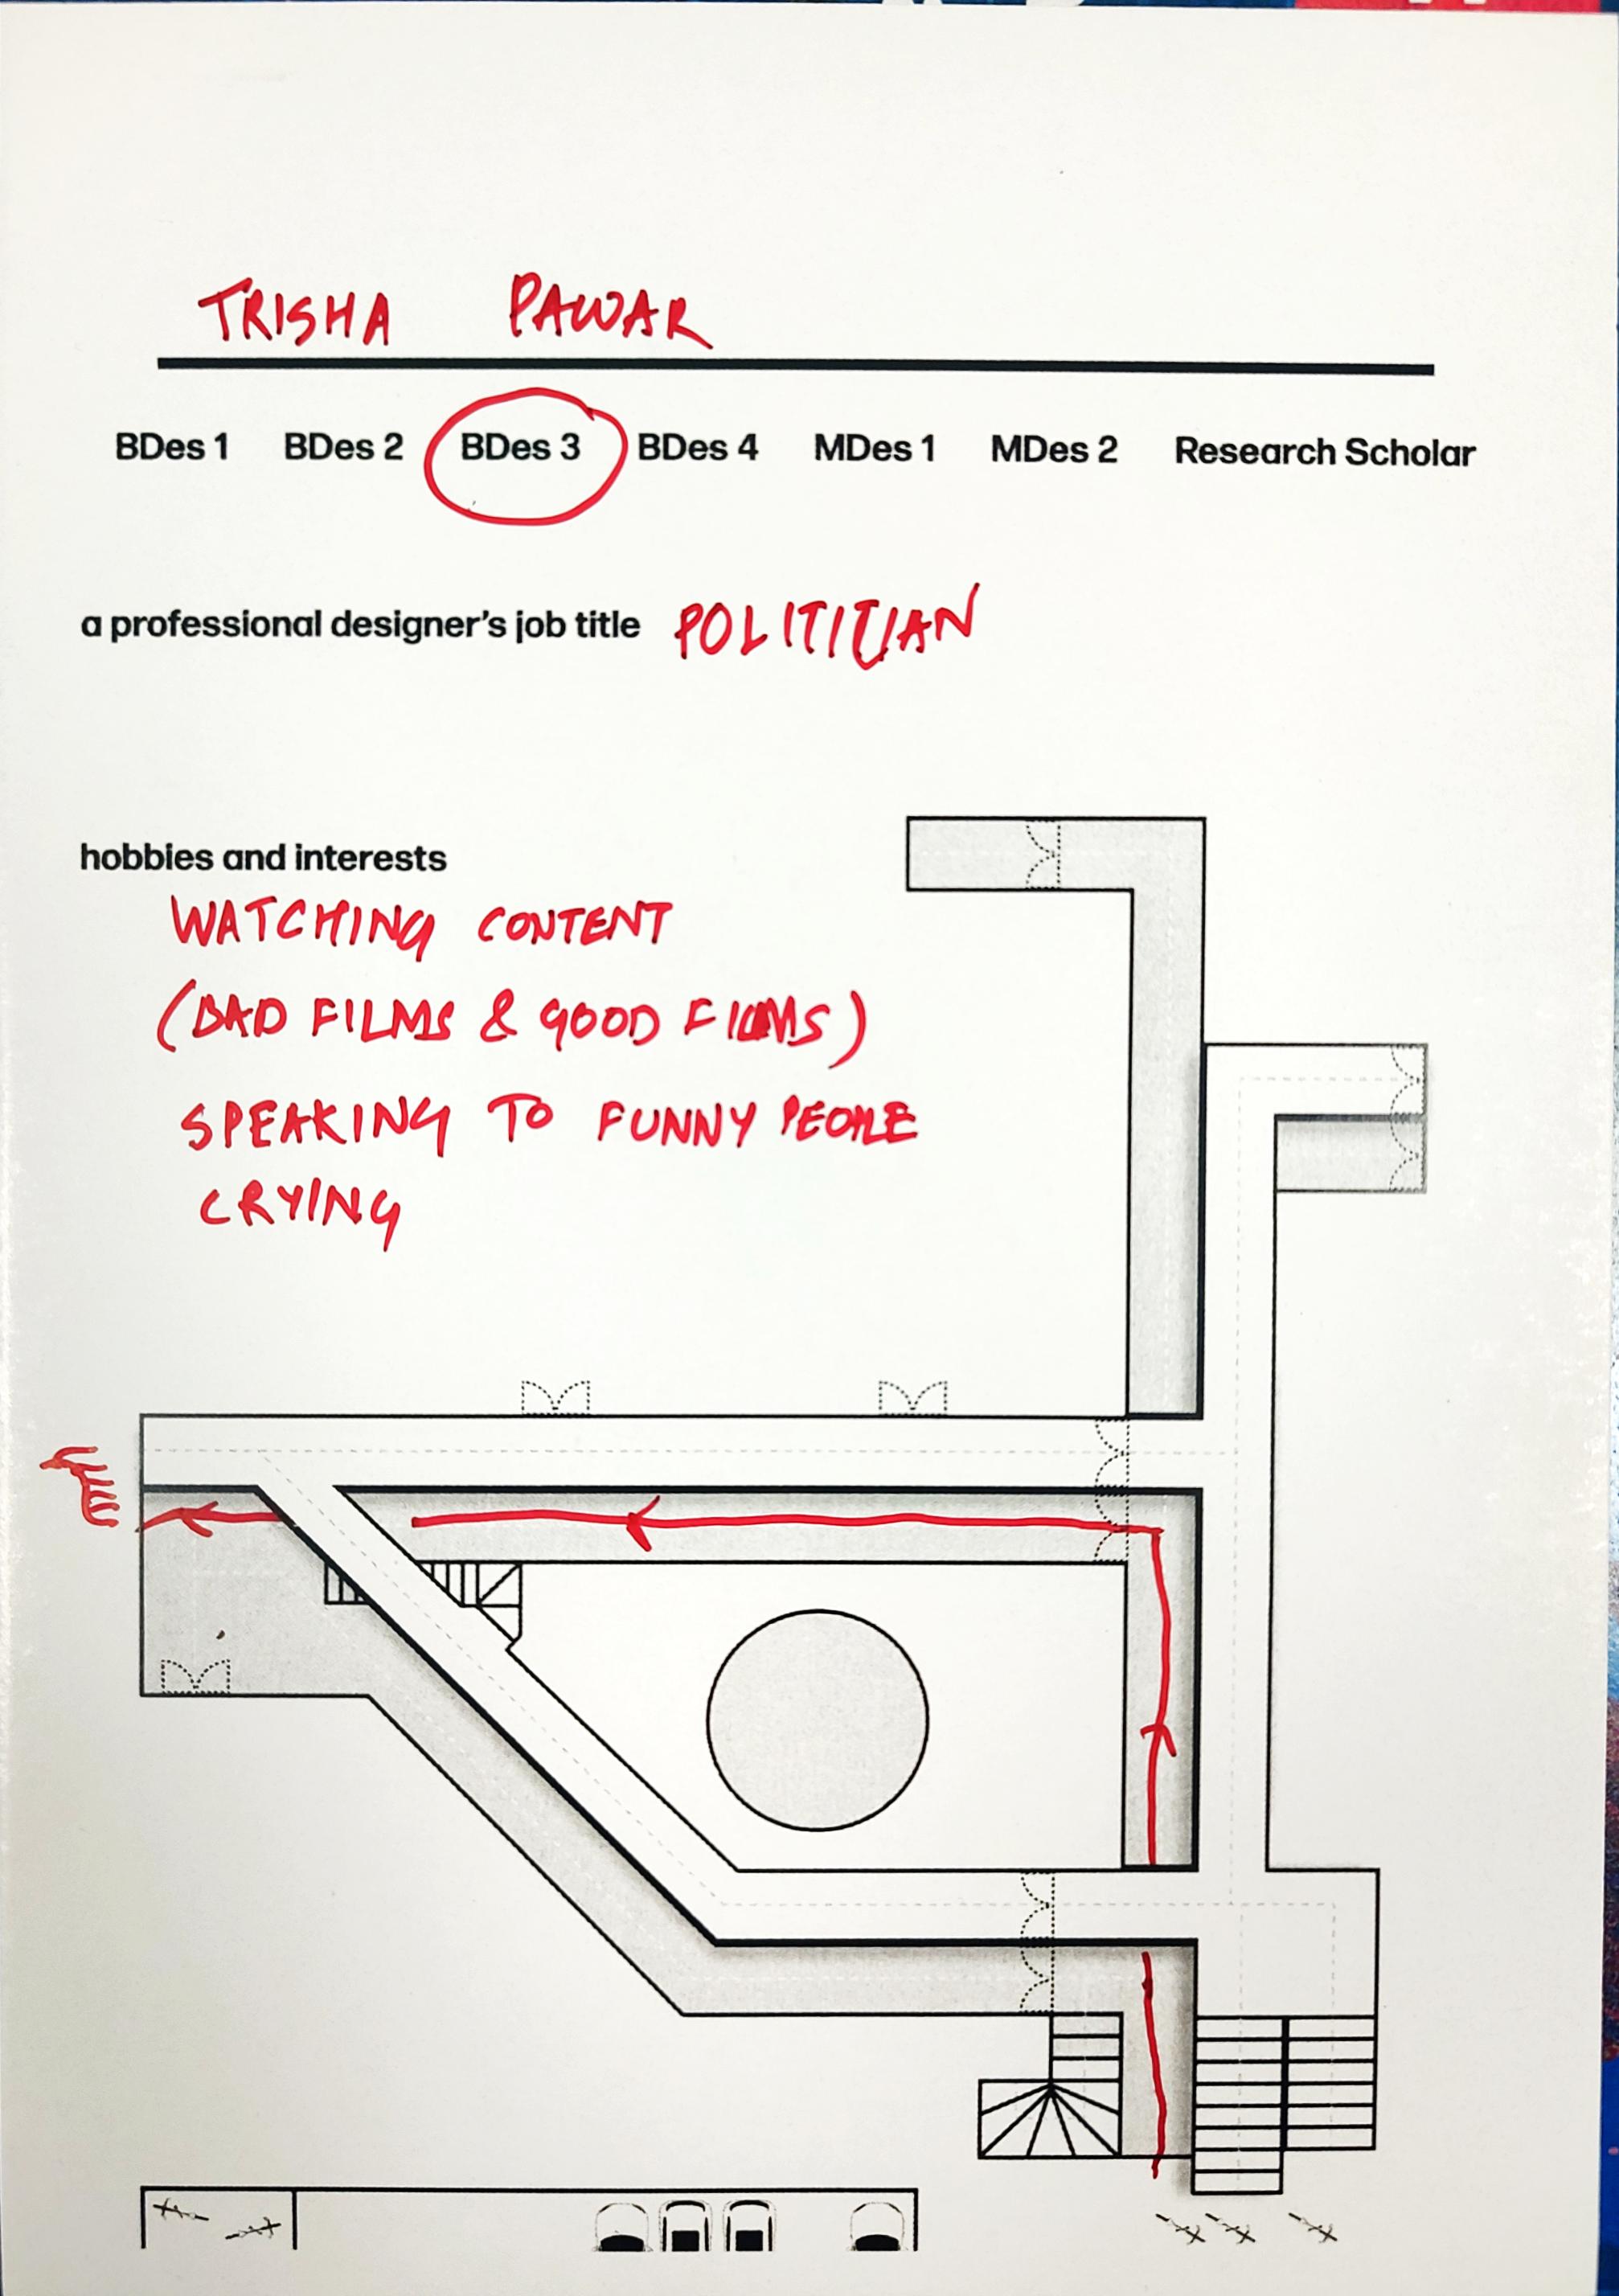 TRISHA PAWAR
BDes 1 BDes 2 BDes 3 BDes 4 MDes 1 MDes 2 Research Scholar
a professional designer's job title POLITITIAN
hobbies and interests
WATCHING CONTENT
(BAD FILMS & GOOD FILMS)
SPEAKING TO FUNNY PEOPLE
CRYING